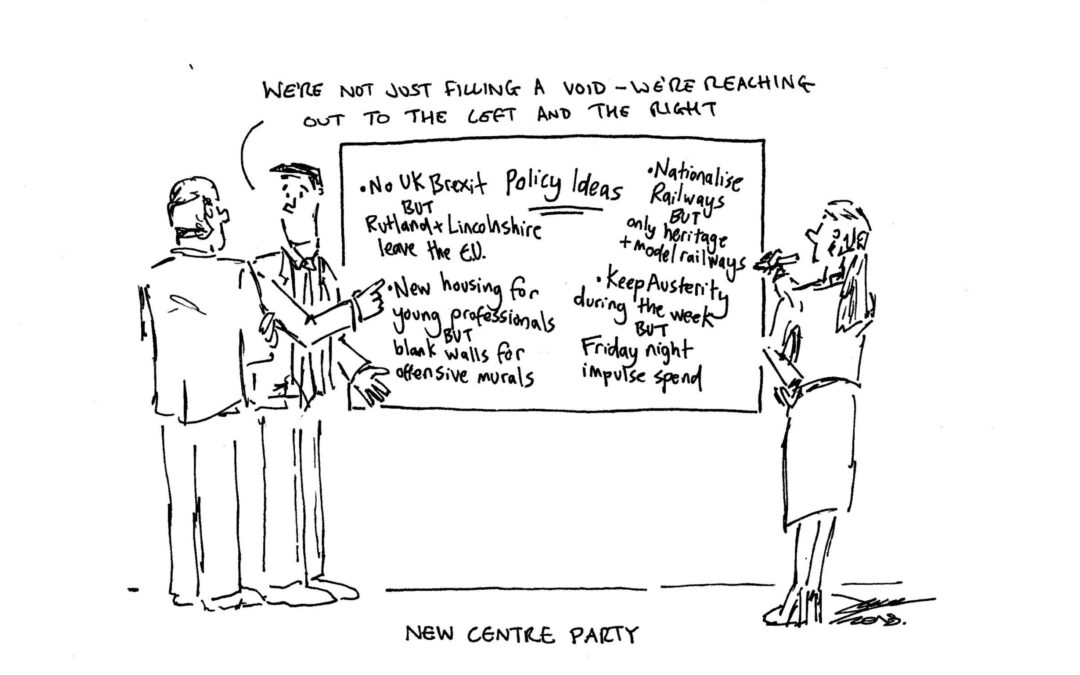 WE'RE NOT JUST FILLING A VOID – WE'RE REACHING
OUT TO THE LEFT AND THE RIGHT
Policy Ideas
• No UK Brexit
BUT
Rutland + Lincolnshire
leave the E.U.
• New housing for
young professionals
BUT
blank walls for
offensive murals
• Nationalise
Railways
BUT
only heritage
+ model railways
• Keep Austerity
during the week
BUT
Friday night
impulse spend
NEW CENTRE PARTY